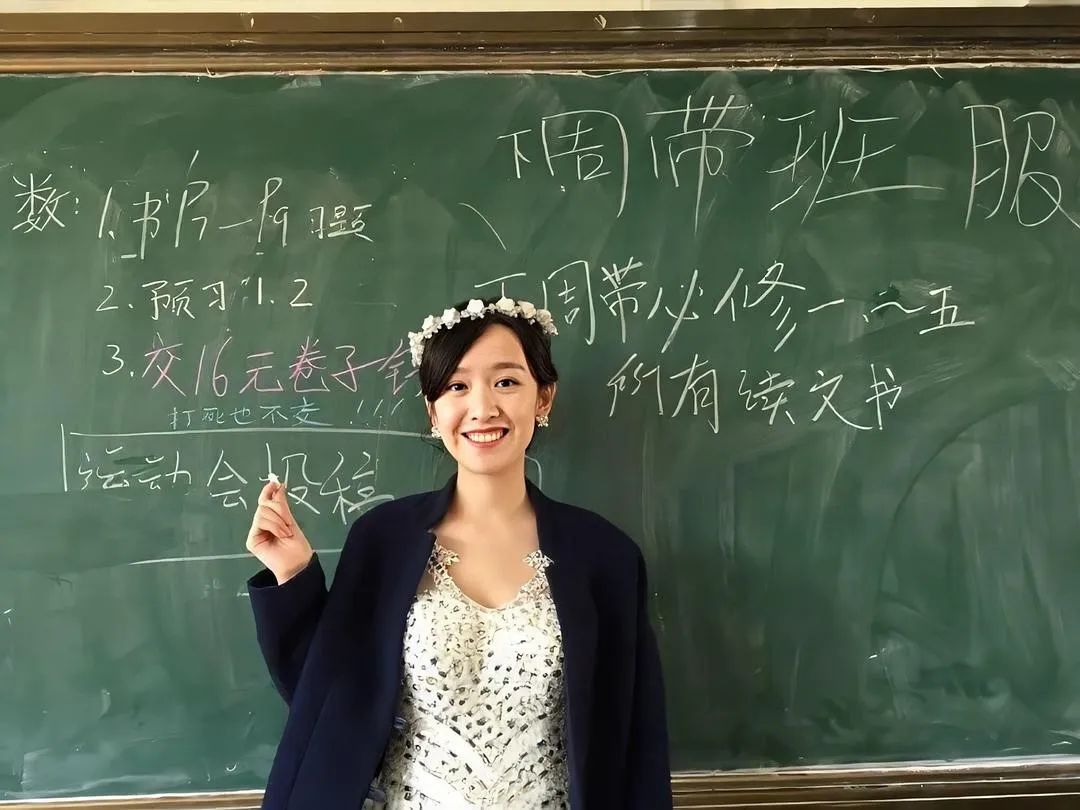 数:
1.书P7—P9 习题
2.预习 1.2
3.交16元卷子钱
打死也不交!!!
运动会投稿
下周带班服
下周带必修一~五
所有读文书